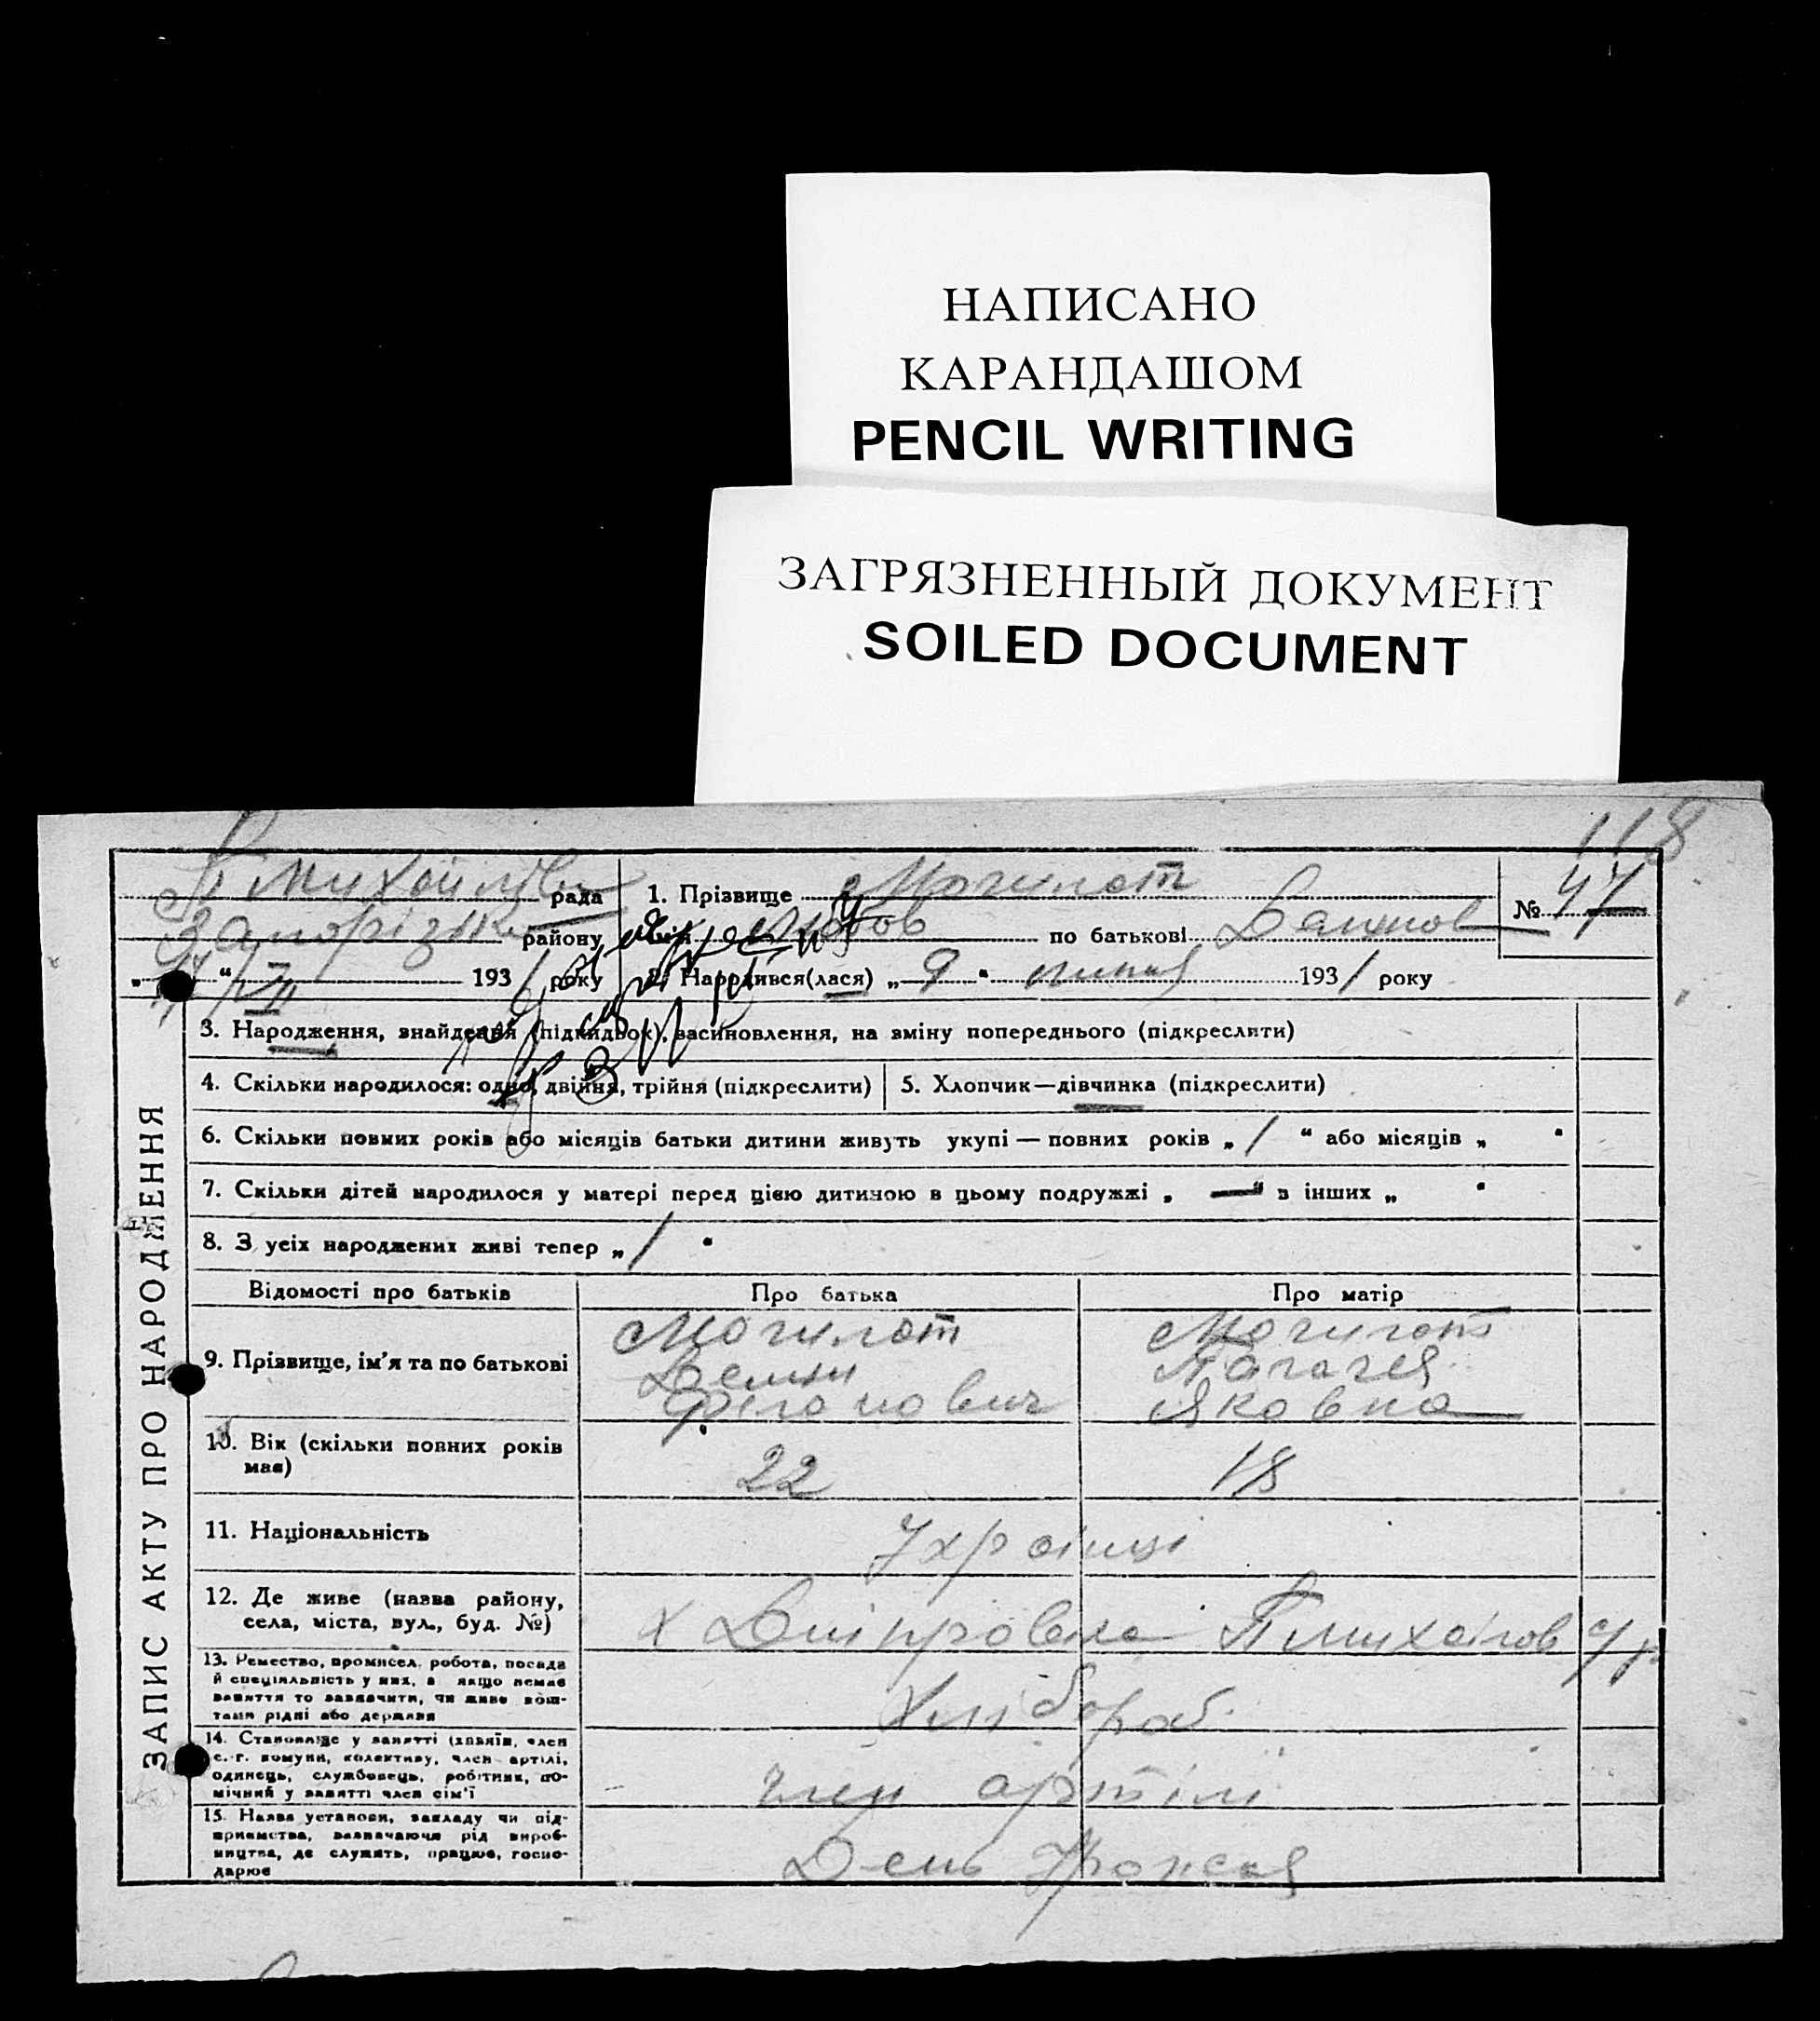 НАПИСАНО
КАРАНДАШОМ
PENCIL WRITING
ЗАГРЯЗНЕННЫЙ ДОКУМЕНТ
SOILED DOCUMENT
118
ЗАПИС АКТУ ПРО НАРОДЖЕННЯ
рада
району
1931 року
1. Прізвище Могилат
Любов по батькові
№ 47
2. Народився(лася) „ 9 “ липня 1931 року
3. Народження, знайдення (підкидьок), засиновлення, на зміну попереднього (підкреслити)
4. Скільки народилося: одно, двійня, трійня (підкреслити)
5. Хлопчик—дівчинка (підкреслити)
6. Скільки повних років або місяців батьки дитини живуть укупі — повних років „ 1 “ або місяців „ “
7. Скільки дітей народилося у матері перед цією дитиною в цьому подружжі „ — “ в інших „ “
8. З усіх народжених живі тепер „ 1 “
Відомості про батьків Про батька Про матір
9. Прізвище, ім’я та по батькові
Могилат
Могилат
Яковна
10. Вік (скільки повних років має)
22 18
11. Національність
Українці
12. Де живе (назва району, села, міста, вул., буд. №)
х Дніпровка
13. Ремество, промисел, робота, посада й спеціяльність у них, а якщо немає заняття то зазначити, чи живе коштами рідні або держави
Хлібороб.
14. Становище у занятті (хазяїн, член с.-г. комуни, колективу, член артілі, одинець, службовець, робітник, помічний у занятті член сім’ї
член артіли
15. Назва установи, закладу чи підприємства, зазначаючи рід виробництва, де служить, працює, господарює
День Урожая